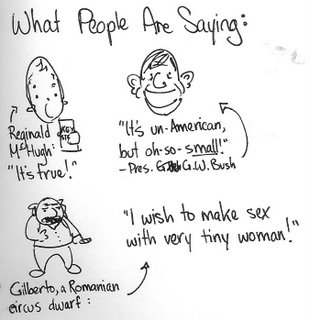 What People Are Saying:
Reginald
McHugh:
"It's true!"
"It's un-American,
but oh-so-small!"
- Pres. G.W. Bush
Gilberto, a Romanian
circus dwarf:
"I wish to make sex
with very tiny woman!"